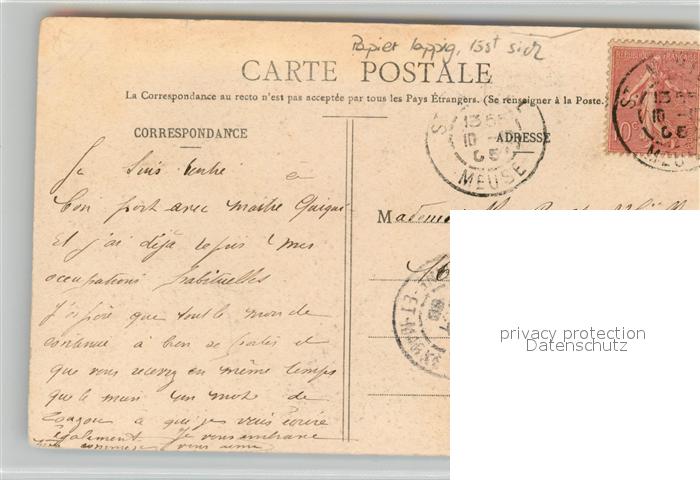 Papier lappig, löst sich
CARTE POSTALE
La Correspondance au recto n'est pas acceptée par tous les Pays Étrangers. (Se renseigner à la Poste.
CORRESPONDANCE
ADRESSE
MEUSE
Je suis rentré à
bon port avec maître
Et j'ai déjà repris mes
occupations habituelles.
J'espère que tout le monde
continue à bien se porter et
que vous recevez en même temps
que le mien un mot de
à qui je vais écrire
également Je vous embrasse
comme je vous aime
privacy protection
Datenschutz